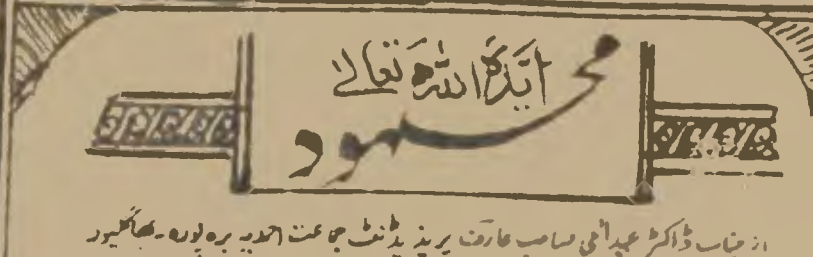 ایّدہ اللہ تعالےٰ
محمود
از جناب ڈاکٹر عبدالحی صاحب عارف پریذیڈنٹ جماعت احمدیہ برہ پورہ۔ بھاگلپور